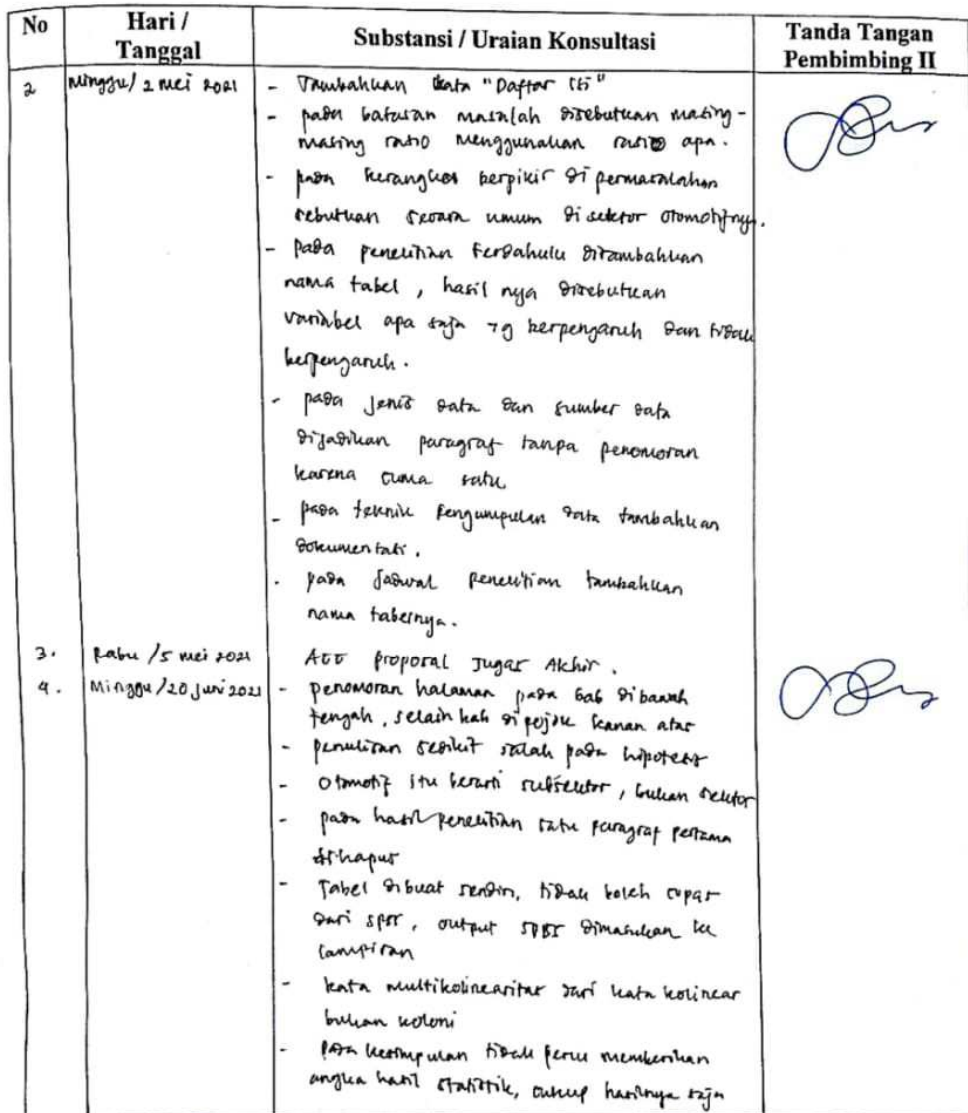 No
Hari / Tanggal
Substansi / Uraian Konsultasi
Tanda Tangan Pembimbing II
2
Minggu/ 2 mei 2021
- Tambahkan kata "Daftar Isi"
- pada batasan masalah disebutkan masing-
masing rasio menggunakan rasio apa.
- pada kerangka berpikir di permasalahan
sebutkan secara umum di sektor otomotifnya.
- pada penelitian terdahulu ditambahkan
nama tabel, hasil nya disebutkan
variabel apa saja yg berpengaruh dan tidak
berpengaruh.
- pada jenis data dan sumber data
dijadikan paragraf tanpa penomoran
karena cuma satu
- pada teknik pengumpulan data tambahkan
dokumentasi.
- pada jadwal penelitian tambahkan
nama tabelnya.
3.
Rabu /5 mei 2021
ACC proposal Tugas Akhir.
4.
Minggu /20 juni 2021
- penomoran halaman pada bab di bawah
tengah, selain bab di pojok kanan atas
- penulisan sedikit salah pada hipotesis
- Otomotif itu berarti subsektor, bukan sektor
- pada hasil penelitian satu paragraf pertama
dihapus
- Tabel dibuat sendiri, tidak boleh copas
dari spss, output SPSS dimasukan ke
lampiran
- kata multikolinearitas dari kata kolinear
bukan koloni
- pada kesimpulan tidak perlu memberikan
angka hasil statistik, cukup hasilnya saja